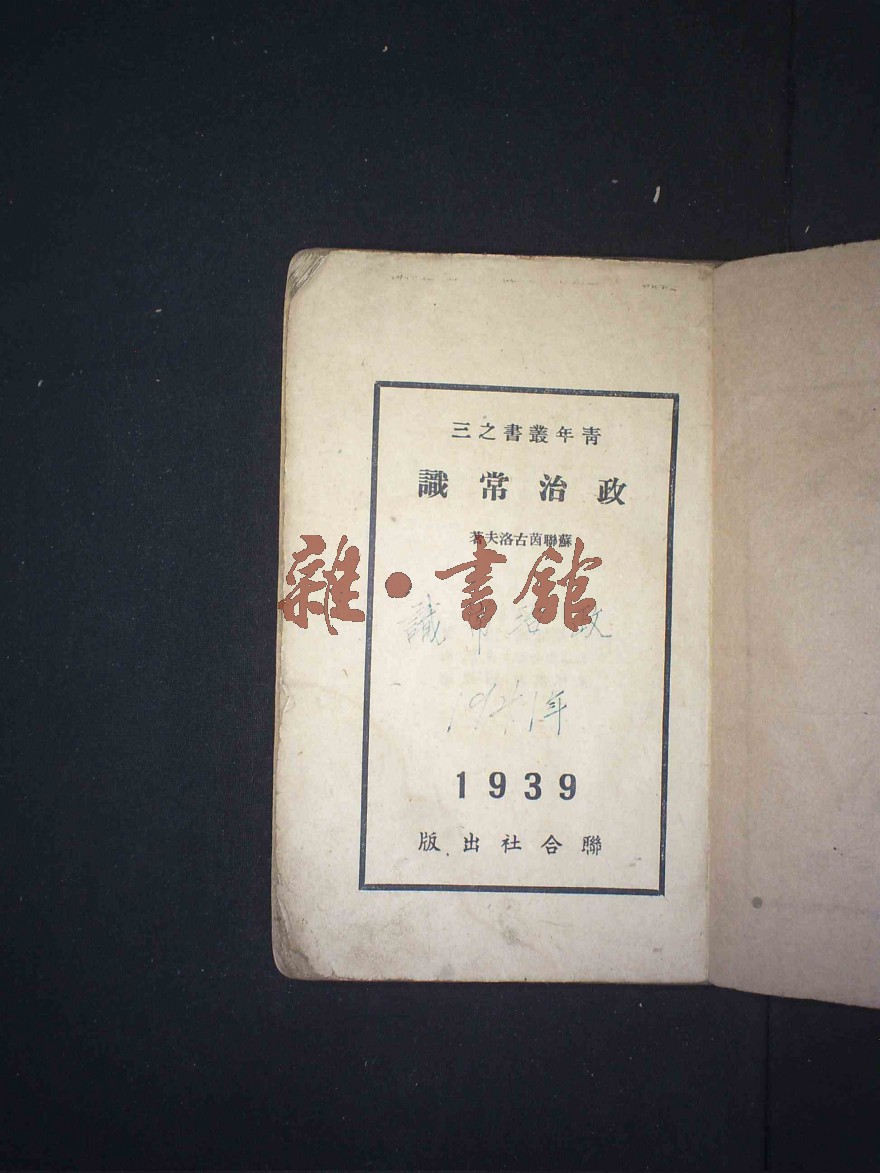 青年叢書之三
政治常識
蘇聯茵古洛夫著
雜·書舘
政治常識
年
1939
聯合社出版